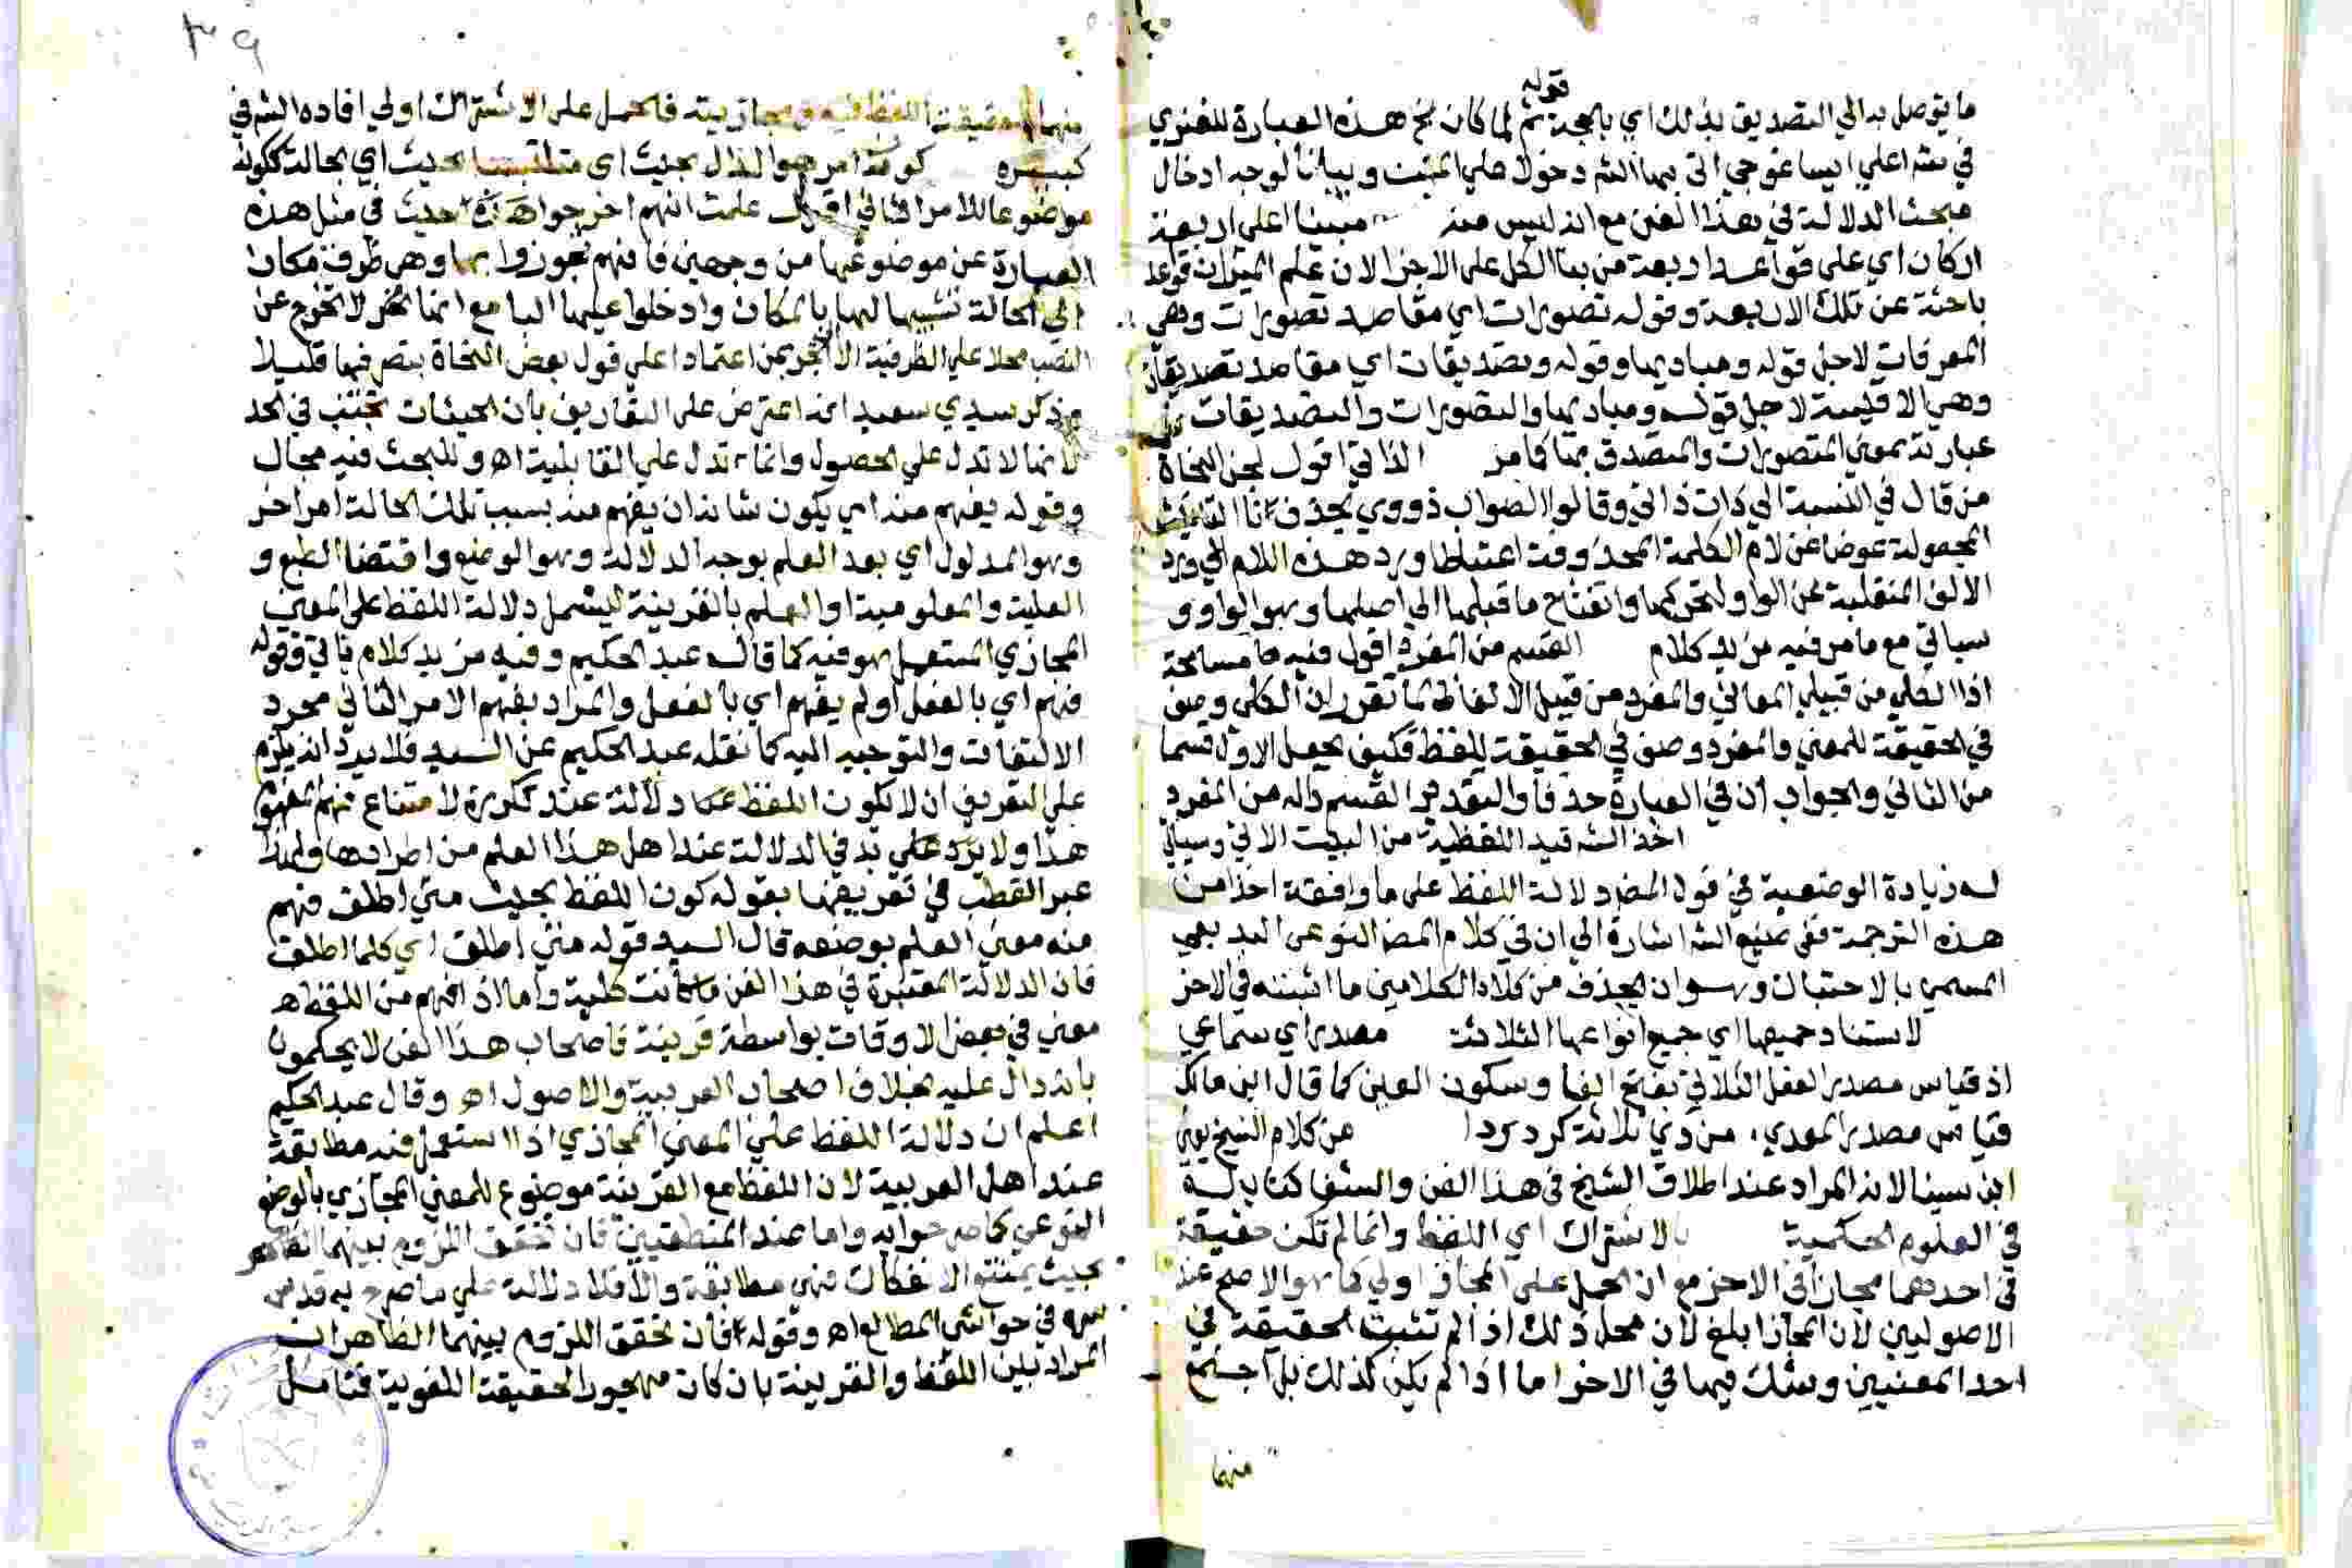 قوله
ما يتوصل به الي التصديق بذلك اي بالحجة ثم لما كان نحو هذه العبارة للغنوي
في شرعلي ايساغوجي اتى بها الشر دخولا علي المبحث وبيانا لوجه ادخال
مبحث الدلالة في هذا الفن مع انه ليس منه مبينا على اربعة
اركان اي على قواعد اربعة من بنا الكل على الاجزا لان علم الميزان قواعد
باحثة عن تلك الاربعة وقوله تصورات اي مقاصد تصورات وهي
المعرفات لاجل قوله ومباديها وقوله وتصديقات اي مقاصد تصديقات
وهي الاقيسة لاجل قوله ومباديها والتصورات والتصديقات في
عبارته بمعني المتصورات والمتصدق بها كما مر الذاتي اقول لحن النحاة
من قال في النسبة الي ذات ذاتي وقالوا الصواب ذووي بحذف تا التانيث
المجعولة عوضا عن لام الكلمة المحذوفة اعتباطا ورد هذه اللام الي ورد
الالف المنقلبة عن الواو لتحركها وانفتاح ما قبلها الي اصلها وهو الواو و
سياتي مع ما مر فيه مزيد كلام القسم من المفرد اقول فيه مسامحة
اذ الكلي من قبيل المعاني والمفرد من قبيل الالفاظ لما تقرر ان الكلي وصف
في الحقيقة للمعني والمفرد وصف في الحقيقة للفظ فكيف يجعل الاول قسما
من الثاني والجواب ان في العبارة حذفا والتقدير القسم داله من المفرد
اخذ الشر قيد اللفظية من البيت الاتي وسياتي
له زيادة الوضعية في قول المصر دلالة اللفظ على ما وافقه اخذا من
هذه الترجمة ففي صنيع الشر اشارة الي ان في كلام المصر النوع البديعي
المسمي بالاحتباك وهو ان يحذف من كلا الكلامين ما اثبته في الاخر
لاستناد جميعها اي جميع انواعها الثلاثة مصدر اي سماعي
اذ قياس مصدر الفعل الثلاثي بفتح الفا وسكون العين كما قال ابن مالك
قياس مصدر المعدي من ذي ثلاثة كرد ردا من كلام الشيخ يعني
ابن سينا لانه المراد عند اطلاق الشيخ في هذا الفن والشفا كتاب له
في العلوم الحكمية بالاشتراك اي اللفظ وانما لم تكن حقيقة
في احدهما مجازا في الاخر مع ان الحمل على المجاز اولي كما هو الاصح عند
الاصوليين لان المجاز ابلغ لان محل ذلك اذا لم تثبت الحقيقة في
احد المعنيين وشك فيها في الاخر اما اذا لم يكن كذلك بل
منهما
٣٩
منهما حقيقة اللفظ فيه ومجازيته فالحمل على الاشتراك اولي افاده الشر في
كبيره كون امر هو الدال بحيث اي متلبسا بحيث اي بحالة ككونه
موضوعا للامر الثاني اقول علمت انهم اخرجوا حيث في مثل هذه
العبارة عن موضوعها من وجهين فانهم تجوزوا بها وهي ظرف مكان
الي الحالة تشبيها لها بالمكان وادخلوا عليها البا مع انها لا تخرج عن
النصب محلا علي الظرفية الا الجر بمن اعتمادا علي قول بعض النحاة بتصرفها قليلا
وذكر سيدي سعيد انه اعترض على التعاريف بان الحيثيات تجتنب في الحد
لانها لا تدل علي الحصول وانما تدل علي القابلية اه وللبحث فيه مجال
وقوله يفهم منه اي يكون شانه ان يفهم منه بسبب تلك الحالة امر اخر
وهو المدلول اي بعد العلم بوجه الدلالة وهو الوضع واقتضا الطبع و
العلية والمعلومية او العلم بالقرينة ليشمل دلالة اللفظ على المعني
المجازي المستعمل هو فيه كما قاله عبد الحكيم وفيه مزيد كلام ياتي وقوله
فهم اي بالفعل او لم يفهم اي بالفعل والمراد بفهم الامر الثاني مجرد
الالتفات والتوجيه اليه كما نقله عبد الحكيم عن السيد فلا يرد انه يلزم
علي التعريف ان لا يكون اللفظ دلالة عند تكرره لامتناع فهم المفهوم
هذا ولا يرد في الدلالة عند اهل هذا العلم من اطرادها ولهذا
عبر القطب في تعريفها بقوله كون اللفظ بحيث متي اطلق فهم
منه معني العلم بوضعه قال السيد قوله متي اطلق اي كلما اطلق
فان الدلالة المعتبرة في هذا الفن ما كانت كلية واما اذا فهم من اللفظ
معني في بعض الاوقات بواسطة قرينة فاصحاب هذا الفن لا يحكمون
بانه دال عليه بخلاف اصحاب العربية والاصول اه وقال عبد الحكيم
اعلم ان دلالة اللفظ علي المعني المجازي اذا استعمل فيه مطابقة
عند اهل العربية لان اللفظ مع القرينة موضوع للمعني المجازي بالوضع
النوعي كما صرحوا به واما عند المنطقيين فان تحقق اللزوم بينهما
بحيث يمتنع الانفكاك فهي مطابقة والا فلا دلالة علي ما صرح به قدس
سره في حواشي المطالع اه وقوله فان تحقق اللزوم بينهما الظاهر ان
المراد بين اللفظ والقرينة بان كان مهجور الحقيقة اللغوية فتامل